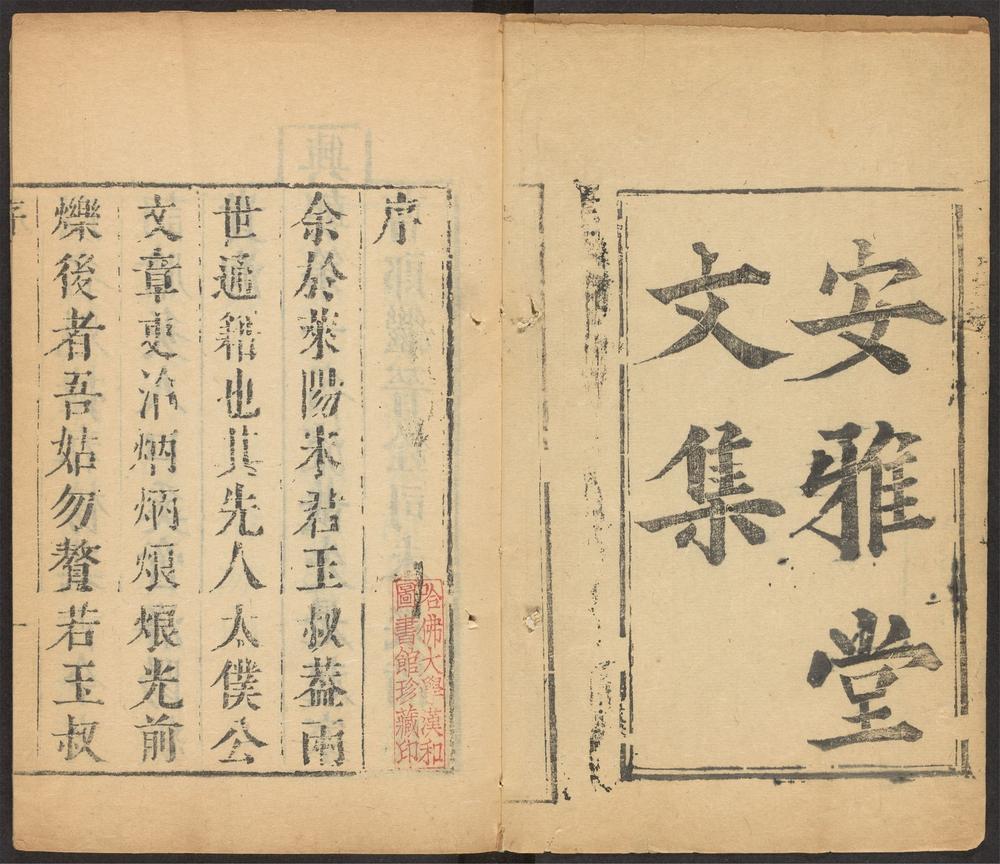 安雅堂
文集
序
哈佛大學漢和
圖書館珍藏印
余於萊陽宋君玉叔葢兩
世通籍也其先人太僕公
文章吏治炳炳烺烺光前
爍後者吾姑勿贅若玉叔